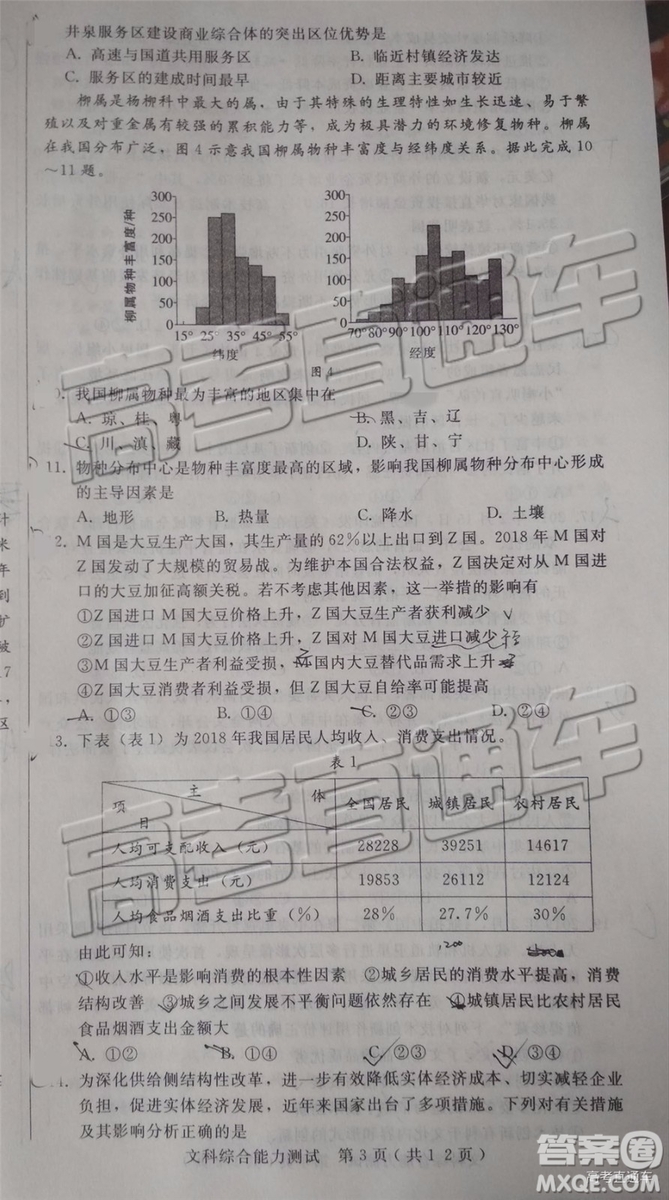 井泉服务区建设商业综合体的突出区位优势是
A. 高速与国道共用服务区 B. 临近村镇经济发达
C. 服务区的建成时间最早 D. 距离主要城市较近
柳属是杨柳科中最大的属，由于其特殊的生理特性如生长迅速、易于繁
殖以及对重金属有较强的累积能力等，成为极具潜力的环境修复物种。柳属
在我国分布广泛，图4示意我国柳属物种丰富度与经纬度关系。据此完成10
～11题。
柳属物种丰富度/种
300
250
200
150
100
50
0
15° 25° 35° 45° 55°
纬度
300
250
200
150
100
50
0
70° 80° 90° 100° 110° 120° 130°
经度
图4
我国柳属物种最为丰富的地区集中在
A. 琼、桂、粤 B. 黑、吉、辽
C. 川、滇、藏 D. 陕、甘、宁
11. 物种分布中心是物种丰富度最高的区域，影响我国柳属物种分布中心形成
的主导因素是
A. 地形 B. 热量 C. 降水 D. 土壤
2. M国是大豆生产大国，其生产量的62%以上出口到Z国。2018年M国对
Z国发动了大规模的贸易战。为维护本国合法权益，Z国决定对从M国进
口的大豆加征高额关税。若不考虑其他因素，这一举措的影响有
①Z国进口M国大豆价格上升，Z国大豆生产者获利减少
②Z国进口M国大豆价格上升，Z国对M国大豆进口减少
③M国大豆生产者利益受损，M国内大豆替代品需求上升
④Z国大豆消费者利益受损，但Z国大豆自给率可能提高
A. ①③ B. ①④ C. ②③ D. ②④
3. 下表（表1）为2018年我国居民人均收入、消费支出情况。
表1
主体
项目
全国居民 城镇居民 农村居民
人均可支配收入（元） 28228 39251 14617
人均消费支出（元） 19853 26112 12124
人均食品烟酒支出比重（%） 28% 27.7% 30%
由此可知：
①收入水平是影响消费的根本性因素 ②城乡居民的消费水平提高，消费
结构改善 ③城乡之间发展不平衡问题依然存在 ④城镇居民比农村居民
食品烟酒支出金额大
A. ①② B. ①④ C. ②③ D. ③④
4. 为深化供给侧结构性改革，进一步有效降低实体经济成本、切实减轻企业
负担，促进实体经济发展，近年来国家出台了多项措施。下列对有关措施
及其影响分析正确的是
文科综合能力测试 第3页（共12页）
高考直通车
高考直通车
高考直通车
答案卷
高考直通车
MXQE.COM